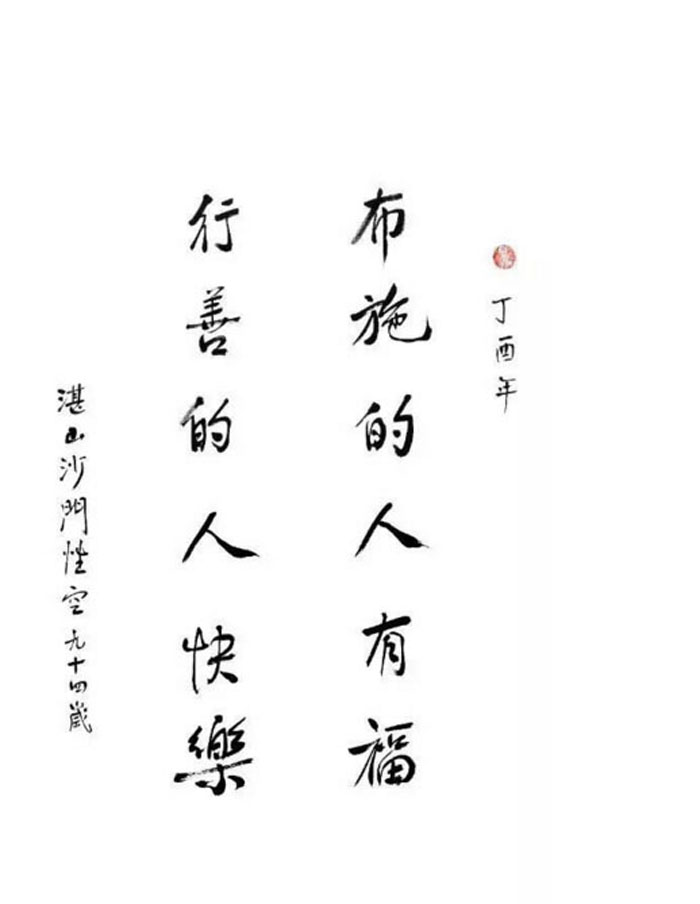 丁酉年
布施的人有福
行善的人快樂
湛山沙門性空九十四歲